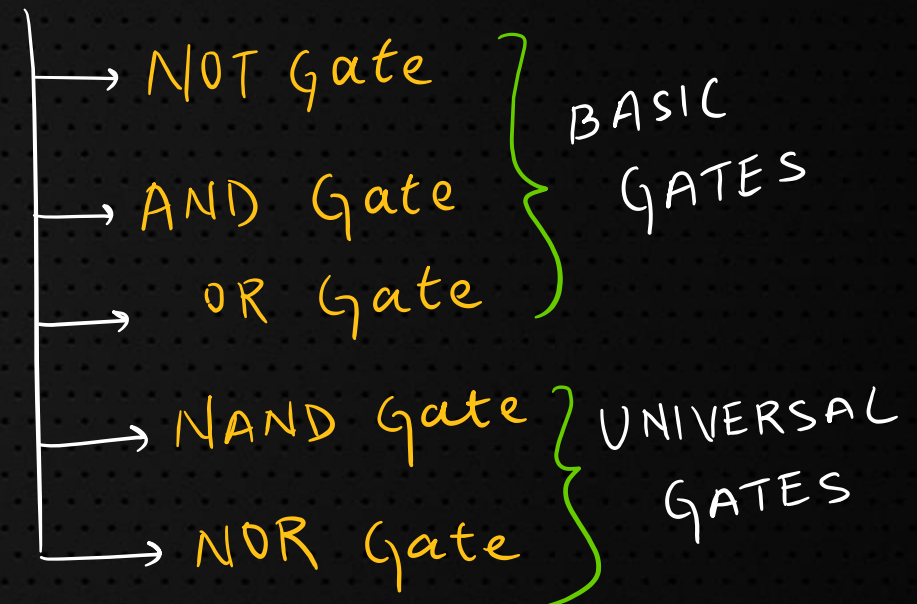 NOT Gate
AND Gate
OR Gate
BASIC
GATES
NAND Gate
NOR Gate
UNIVERSAL
GATES